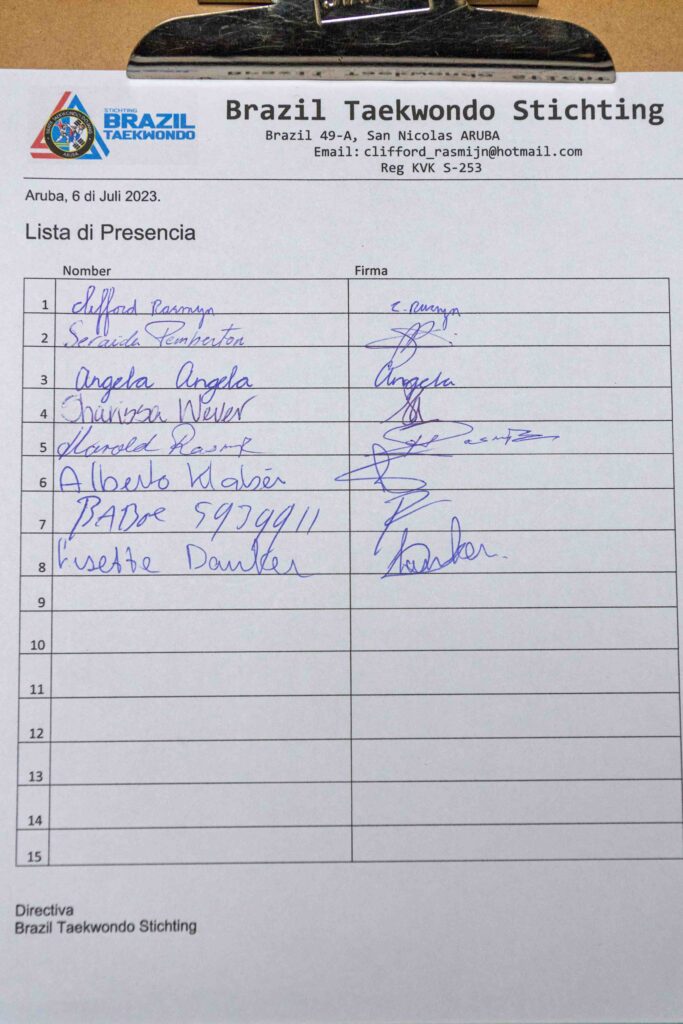 STICHTING
BRAZIL
TAEKWONDO
Brazil Taekwondo Stichting
Brazil 49-A, San Nicolas ARUBA
Email: clifford_rasmijn@hotmail.com
Reg KVK S-253
Aruba, 6 di Juli 2023.
Lista di Presencia
Nomber Firma
1 Clifford Rasmijn C. Rasmijn
2 Seraida Pemberton
3 Angela Angela Angela
4 Sharissa Wever
5 Harold
6 Alberto
7 5939911
8 Lisette Danker Danker.
9
10
11
12
13
14
15
Directiva
Brazil Taekwondo Stichting